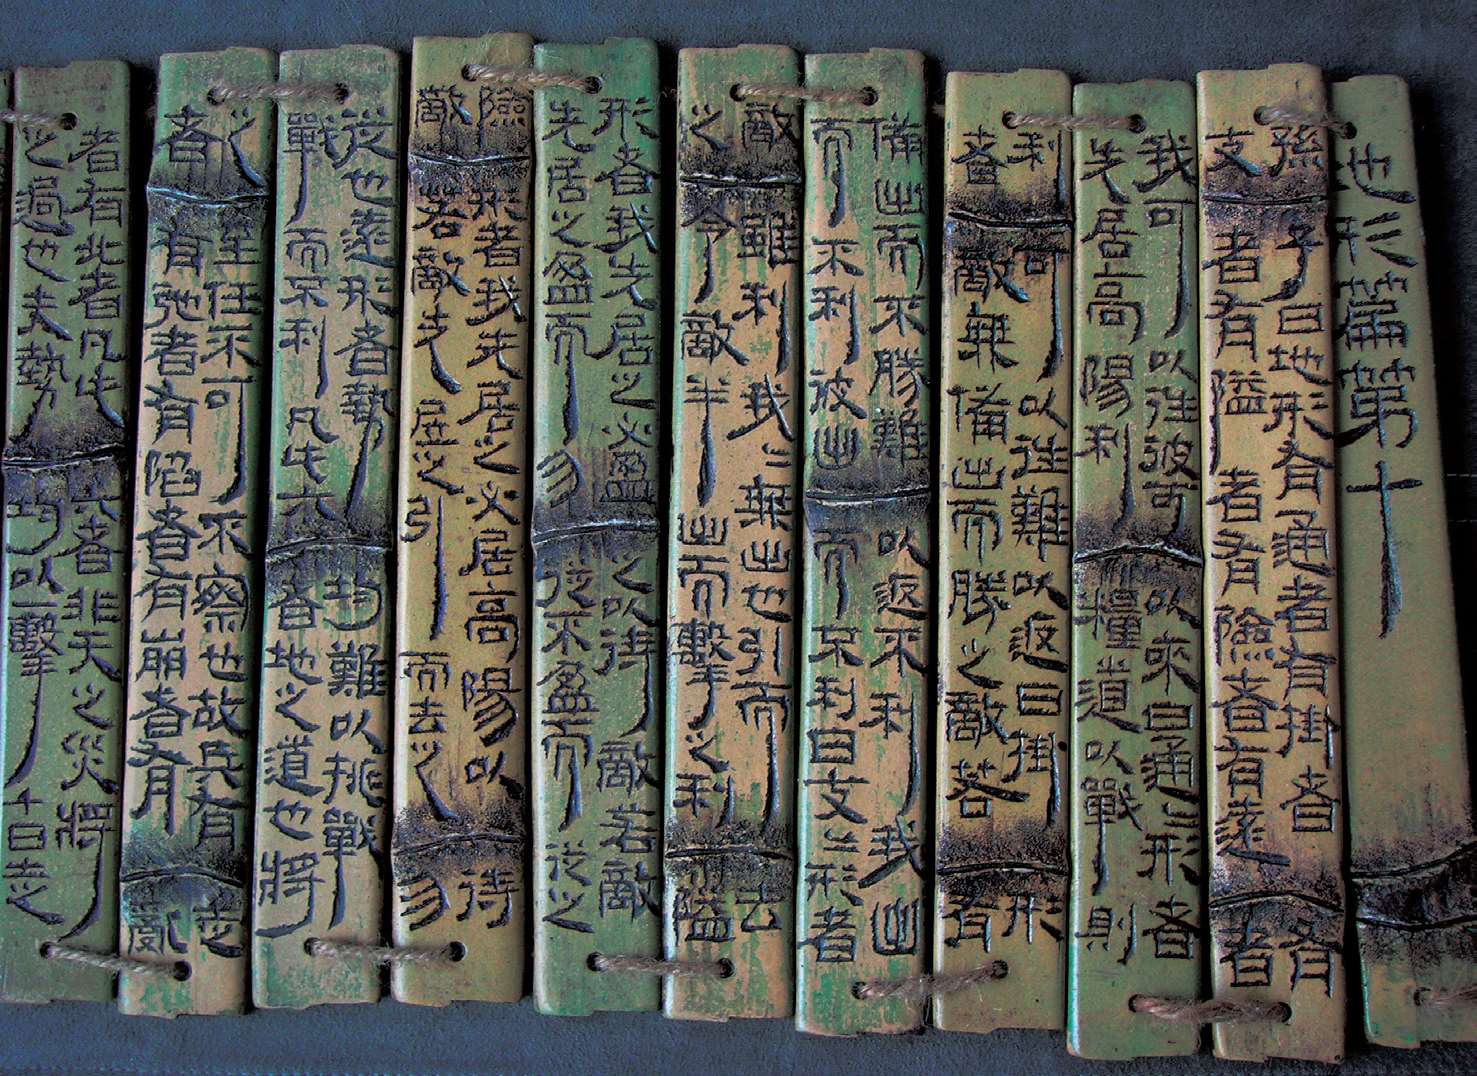 地形篇第十
孫子曰地形有通者有掛者有
支者有隘者有險者有遠者
我可以往彼可以來曰通=形者
先居高陽利糧道以戰則
利可以往難以返曰掛形
者敵無備出而勝之敵若有
備出而不勝難以返不利我出
而不利彼出而不利曰支=形者
敵雖利我=無出也引而去
之令敵半出而擊之利隘
形者我先居之必盈之以待敵若敵
先居之盈而勿從不盈而從之
險形者我先居之必居高陽以待
敵若敵先居之引而去之勿
從也遠形者勢均難以挑戰
戰而不利凡此六者地之道也將
之至任不可不察也故兵有走
者有弛者有陷者有崩者有亂
者有北者凡此六者非天之災將
之過也夫勢均以一擊十曰走